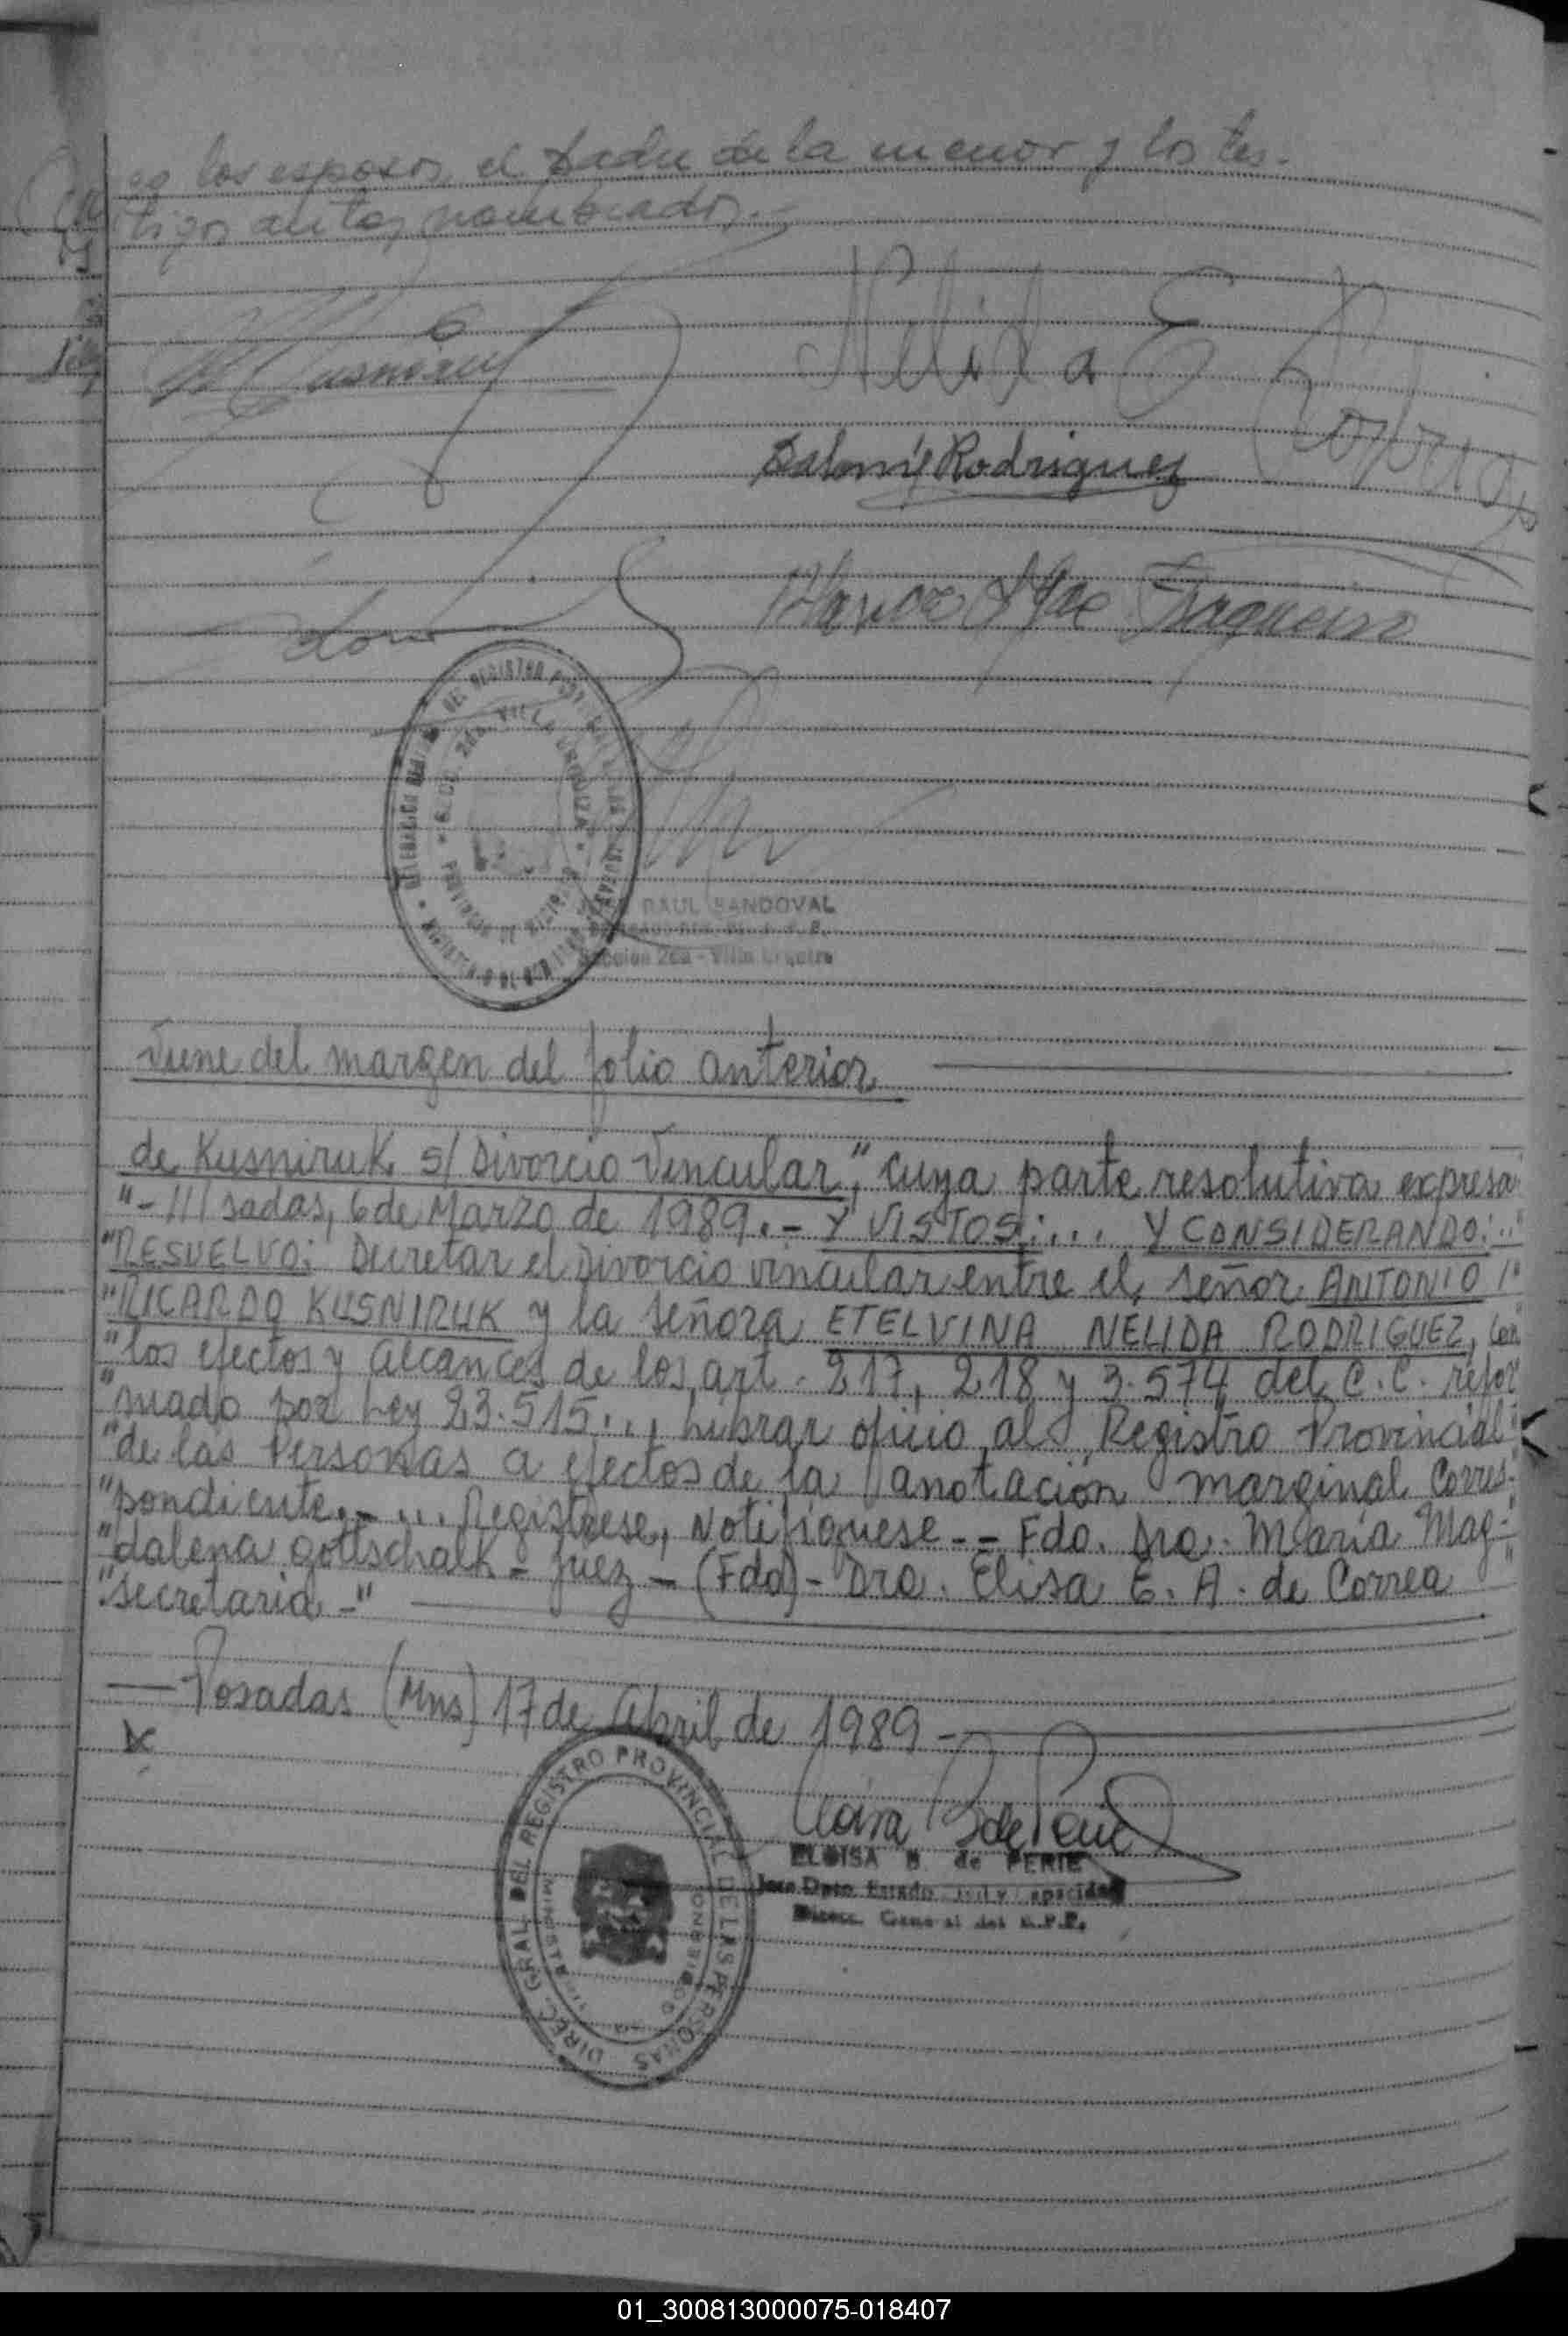 go los esposos, el padre de la menor y los tes-
tigos antes nombrados.-
Kusniruk
Nelida E R
Salomé Rodriguez
Viene del margen del folio anterior
de Kusniruk s/ Divorcio Vincular", cuya parte resolutiva expresa
"-///sadas, 6 de Marzo de 1989.- Y VISTOS:... Y CONSIDERANDO:.."
"RESUELVO: Decretar el Divorcio vincular entre el señor ANTONIO /"
"RICARDO KUSNIRUK y la señora ETELVINA NELIDA RODRIGUEZ, con"
"los efectos y alcances de los art. 217, 218 y 3.574 del C.C. refor"
"mado por Ley 23.515..., Librar oficio al Registro Provincial"
"de las Personas a efectos de la anotación marginal corres-"
"pondiente.-... Registrese, Notifiquese.- Fdo. Dra. Maria Mag-"
"dalena Gottschalk - Juez - (Fdo) - Dra. Elisa E. A. de Correa"
"secretaria -"
Posadas (Mns) 17 de Abril de 1989-
RAUL SANDOVAL
Seccion 2da - Villa Urquiza
VILLA URQUIZA
DIREC. GRAL. DEL REGISTRO PROVINCIAL DE LAS PERSONAS
ELOISA B. de PERIE
Direcc. General del R.P.P.
01_300813000075-018407